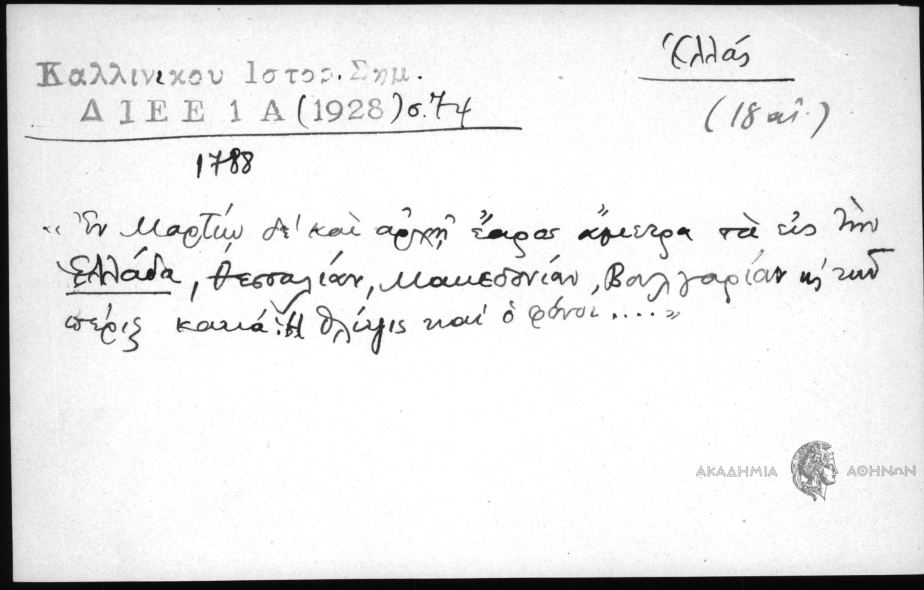 Ἑλλάς
Καλλινικου Ιστορ. Σημ.
ΔΙΕΕ 1 Α (1928) σ. 74
(18 αἰ.)
1788
«Ἐν Μαρτίῳ δὲ καὶ ἀρχῇ ἔαρος ἄμετρα τὰ εἰς τὴν
Ἑλλάδα, Θεσσαλίαν, Μακεδονίαν, Βουλγαρίαν κ' τῶν
πέριξ κακά: Ἡ θλίψις καὶ ὁ φόνοι....»
ΑΚΑΔΗΜΙΑ ΑΘΗΝΩΝ